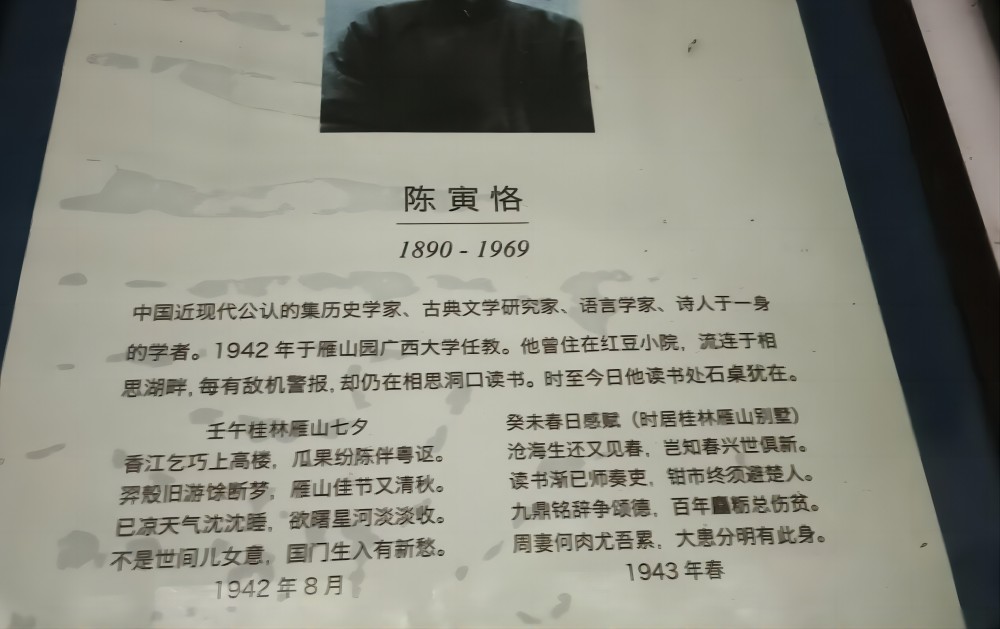 陈寅恪
1890 - 1969
中国近现代公认的集历史学家、古典文学研究家、语言学家、诗人于一身
的学者。1942 年于雁山园广西大学任教。他曾住在红豆小院，流连于相
思湖畔, 每有敌机警报, 却仍在相思洞口读书。时至今日他读书处石桌犹在。
壬午桂林雁山七夕
香江乞巧上高楼，瓜果纷陈伴粤讴。
羿殻旧游馀断梦，雁山佳节又清秋。
已凉天气沈沈睡，欲曙星河淡淡收。
不是世间儿女意，国门生入有新愁。
1942 年 8 月
癸未春日感赋（时居桂林雁山别墅）
沧海生还又见春，岂知春兴世俱新。
读书渐已师秦吏，钳市终须避楚人。
九鼎铭辞争颂德，百年粝总伤贫。
周妻何肉尤吾累，大患分明有此身。
1943 年春